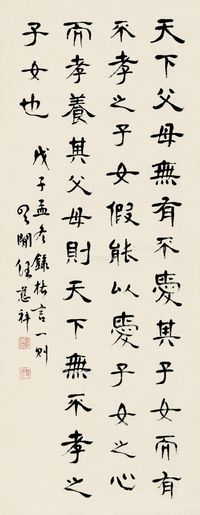 天下父母無有不愛其子女而有
不孝之子女假能以愛子女之心
而孝養其父母則天下無不孝之
子女也
戊子孟冬錄格言一則
任慈祥